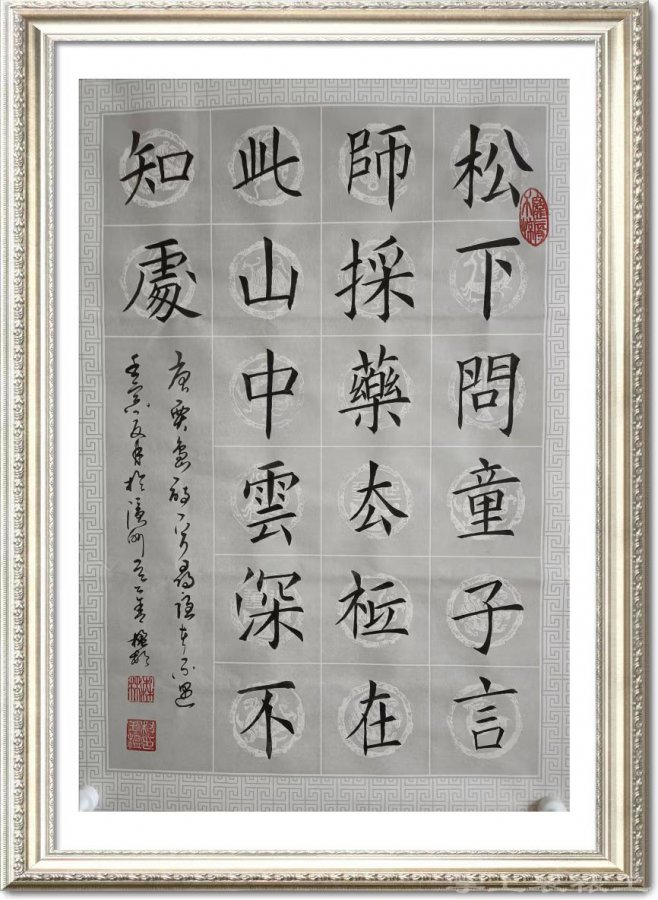 松下問童子言
師採藥厺祗在
此山中雲深不
知處
唐賈島詩一首尋隱者不遇
壬寅夏月於